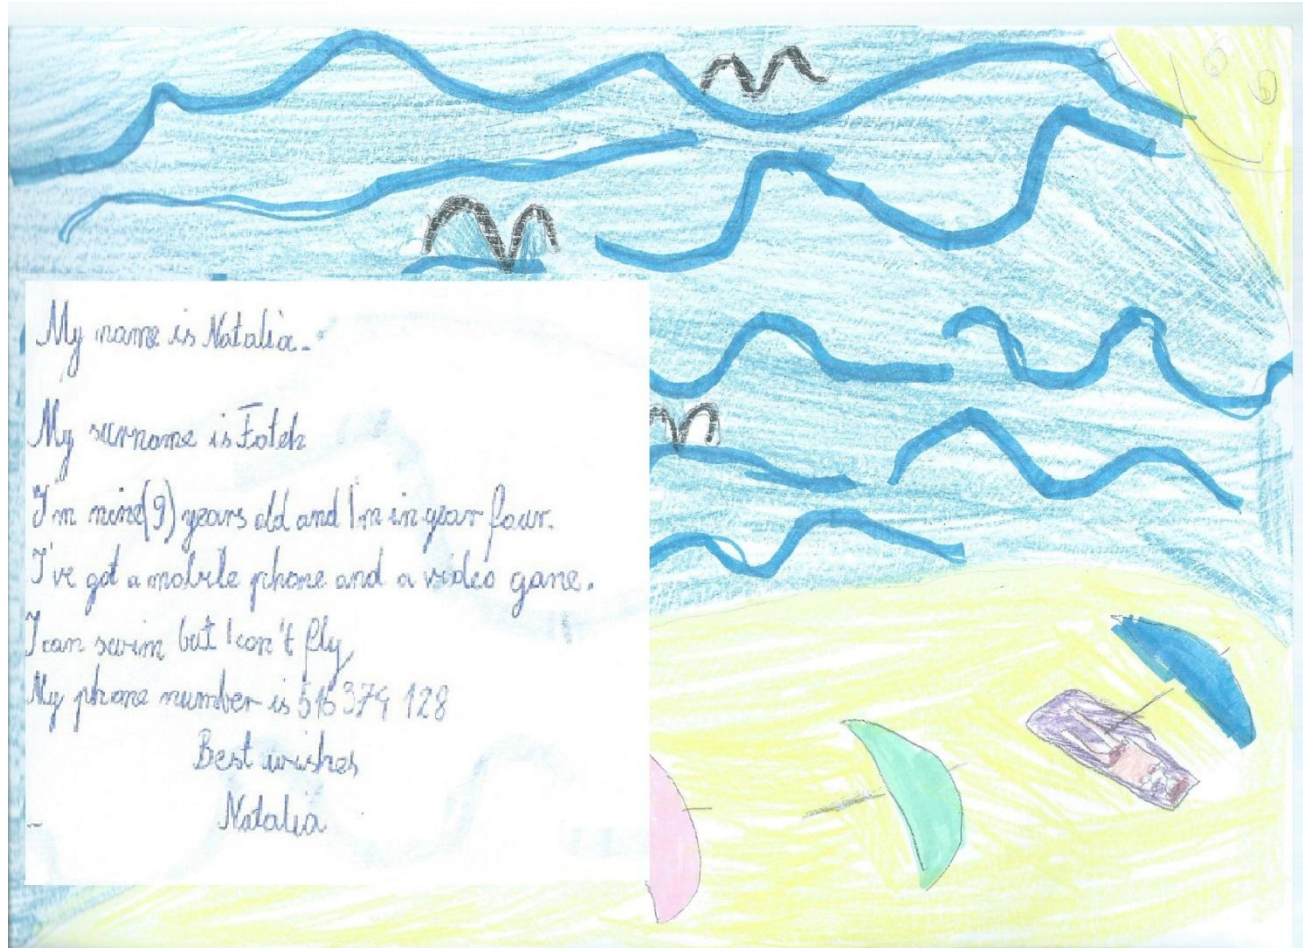 My name is Natalia.
My surname is Fotek
I'm nine(9) years old and I'm in year four.
I've got a mobile phone and a video game.
I can swim but I can't fly
My phone number is 516 374 128
Best wishes
Natalia